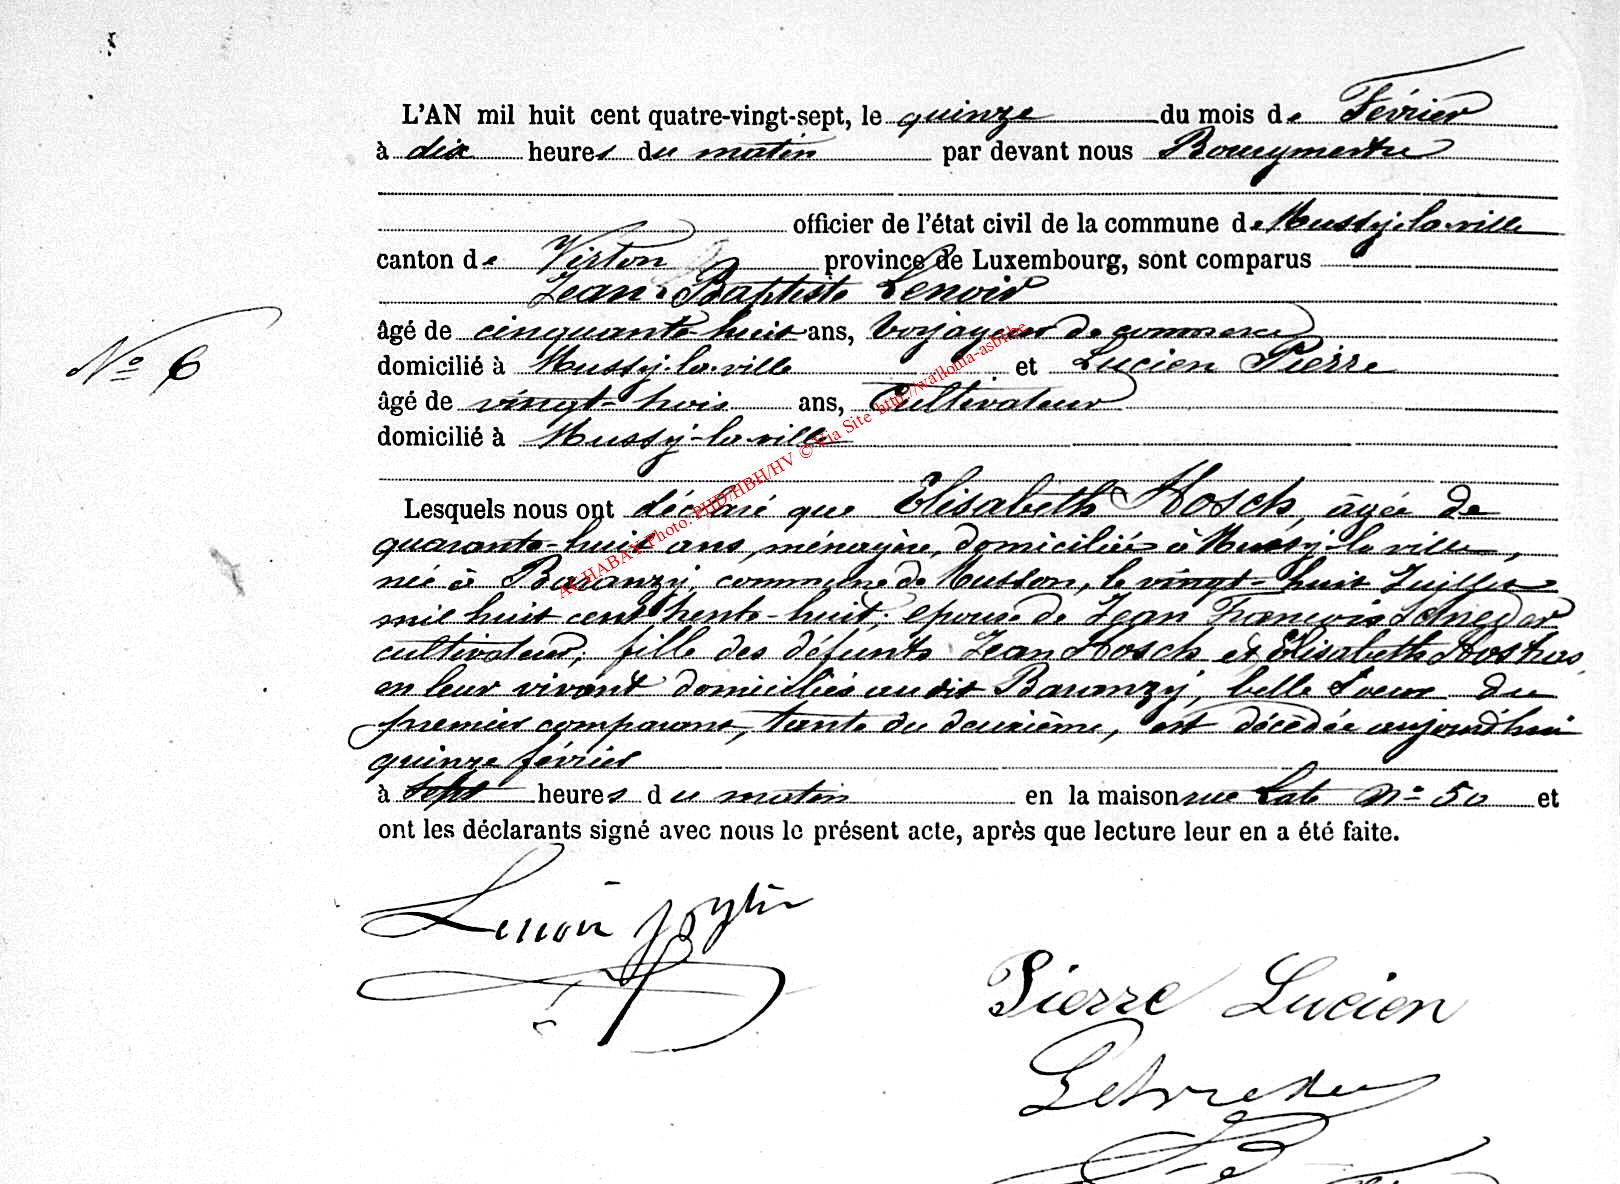 L'AN mil huit cent quatre-vingt-sept, le quinze du mois de Février
à dix heures du matin par devant nous Bourgmestre
officier de l'état civil de la commune de Mussy-la-ville
canton de Virton province de Luxembourg, sont comparus
Jean Baptiste Lenoir
âgé de cinquante-huit ans, Voyageur de commerce
N° 6
domicilié à Mussy-la-ville et Lucien Pierre
âgé de vingt-trois ans, Cultivateur
domicilié à Mussy-la-ville
AC HABAY Photo. PHD/HBH/HV © Via Site http://wallonia-asbl.be
Lesquels nous ont déclaré que Elisabeth Hosch, âgée de
quarante-huit ans, ménagère, domiciliée à Mussy-la-ville,
née à Baranzy, commune de Musson, le vingt-huit Juillet
mil huit cent trente-huit, épouse de Jean François Schneder
cultivateur, fille des défunts Jean Hosch et Elisabeth
en leur vivant domiciliés audit Baranzy, belle soeur du
premier comparant, tante du deuxième, est décédée aujourd'hui
quinze février
à sept heures du matin en la maison rue Late N° 50 et
ont les déclarants signé avec nous le présent acte, après que lecture leur en a été faite.
Lenoir
Pierre Lucien